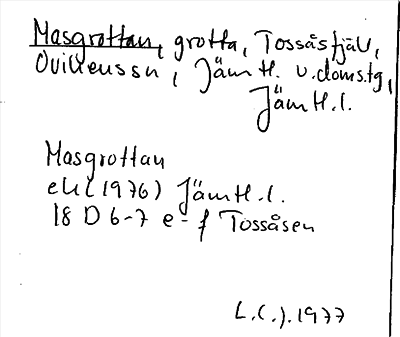 Masgrottan, grotta, Tossåsfjäll,
Ovikens sn, Jämtl. v. doms.tg,
Jämtl.l.
Masgrottan
ekl (1976) Jämtl.l.
18 D 6-7 e-f Tossåsen
L.(.). 1977